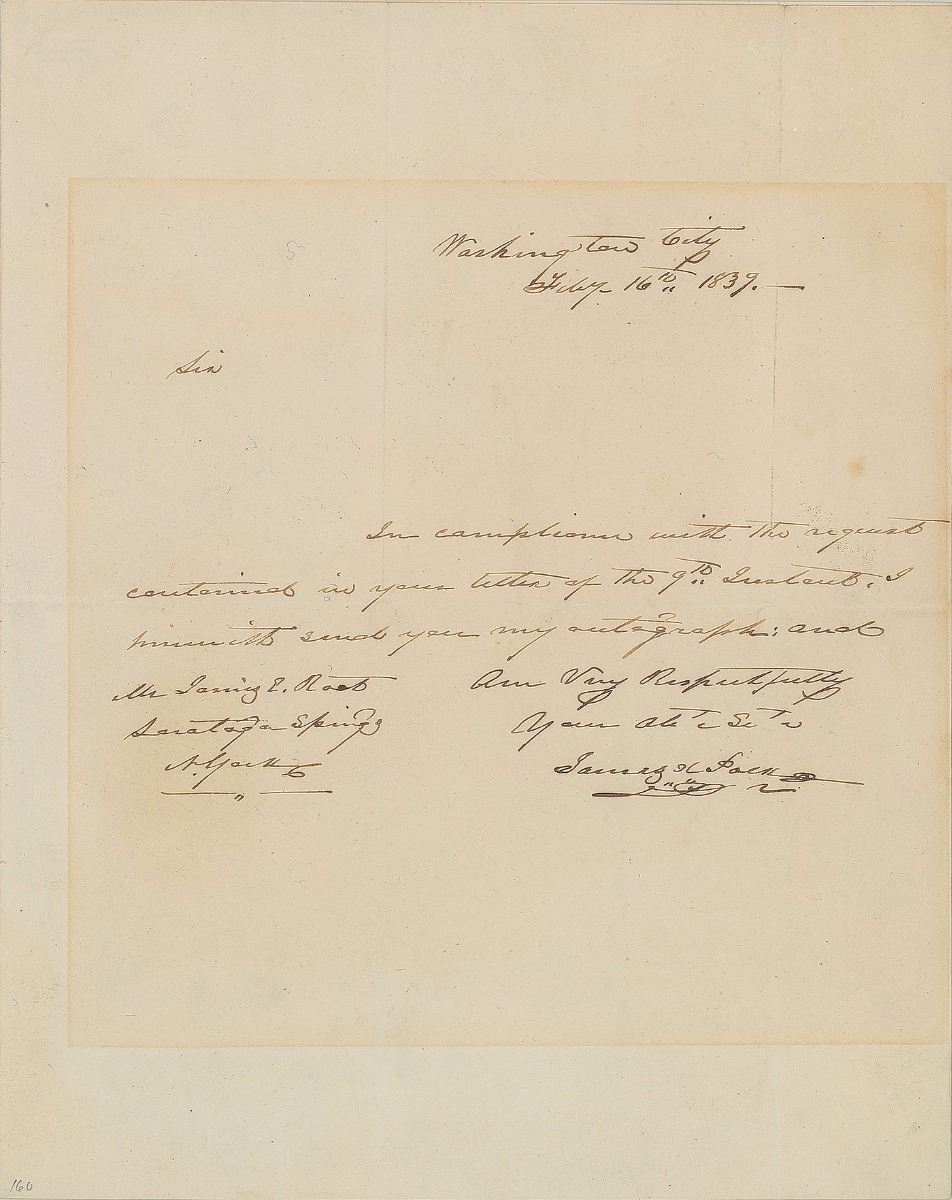 Washington City
Feby 16th 1839.
Sir
In compliance with the request
contained in your letter of the 9th Instant, I
herewith send you my autograph; and
Am Very Respectfully
Your Obt. Sert.
James K. Polk
Mr James E. Root
Saratoga Springs
N. York
160